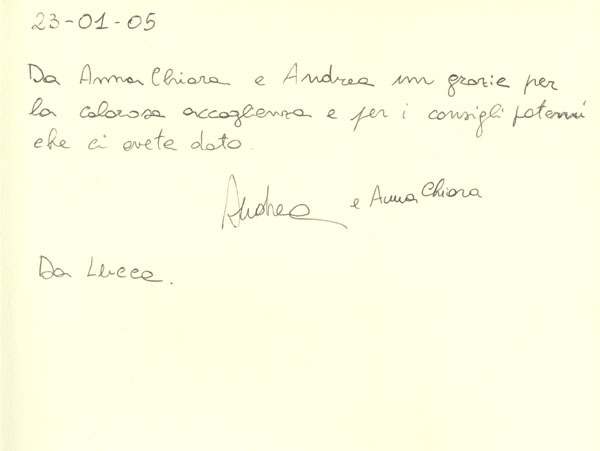 23-01-05
Da Anna Chiara e Andrea un grazie per
la calorosa accoglienza e per i consigli paterni
che ci avete dato.
Andrea e Anna Chiara
Da Lucca.